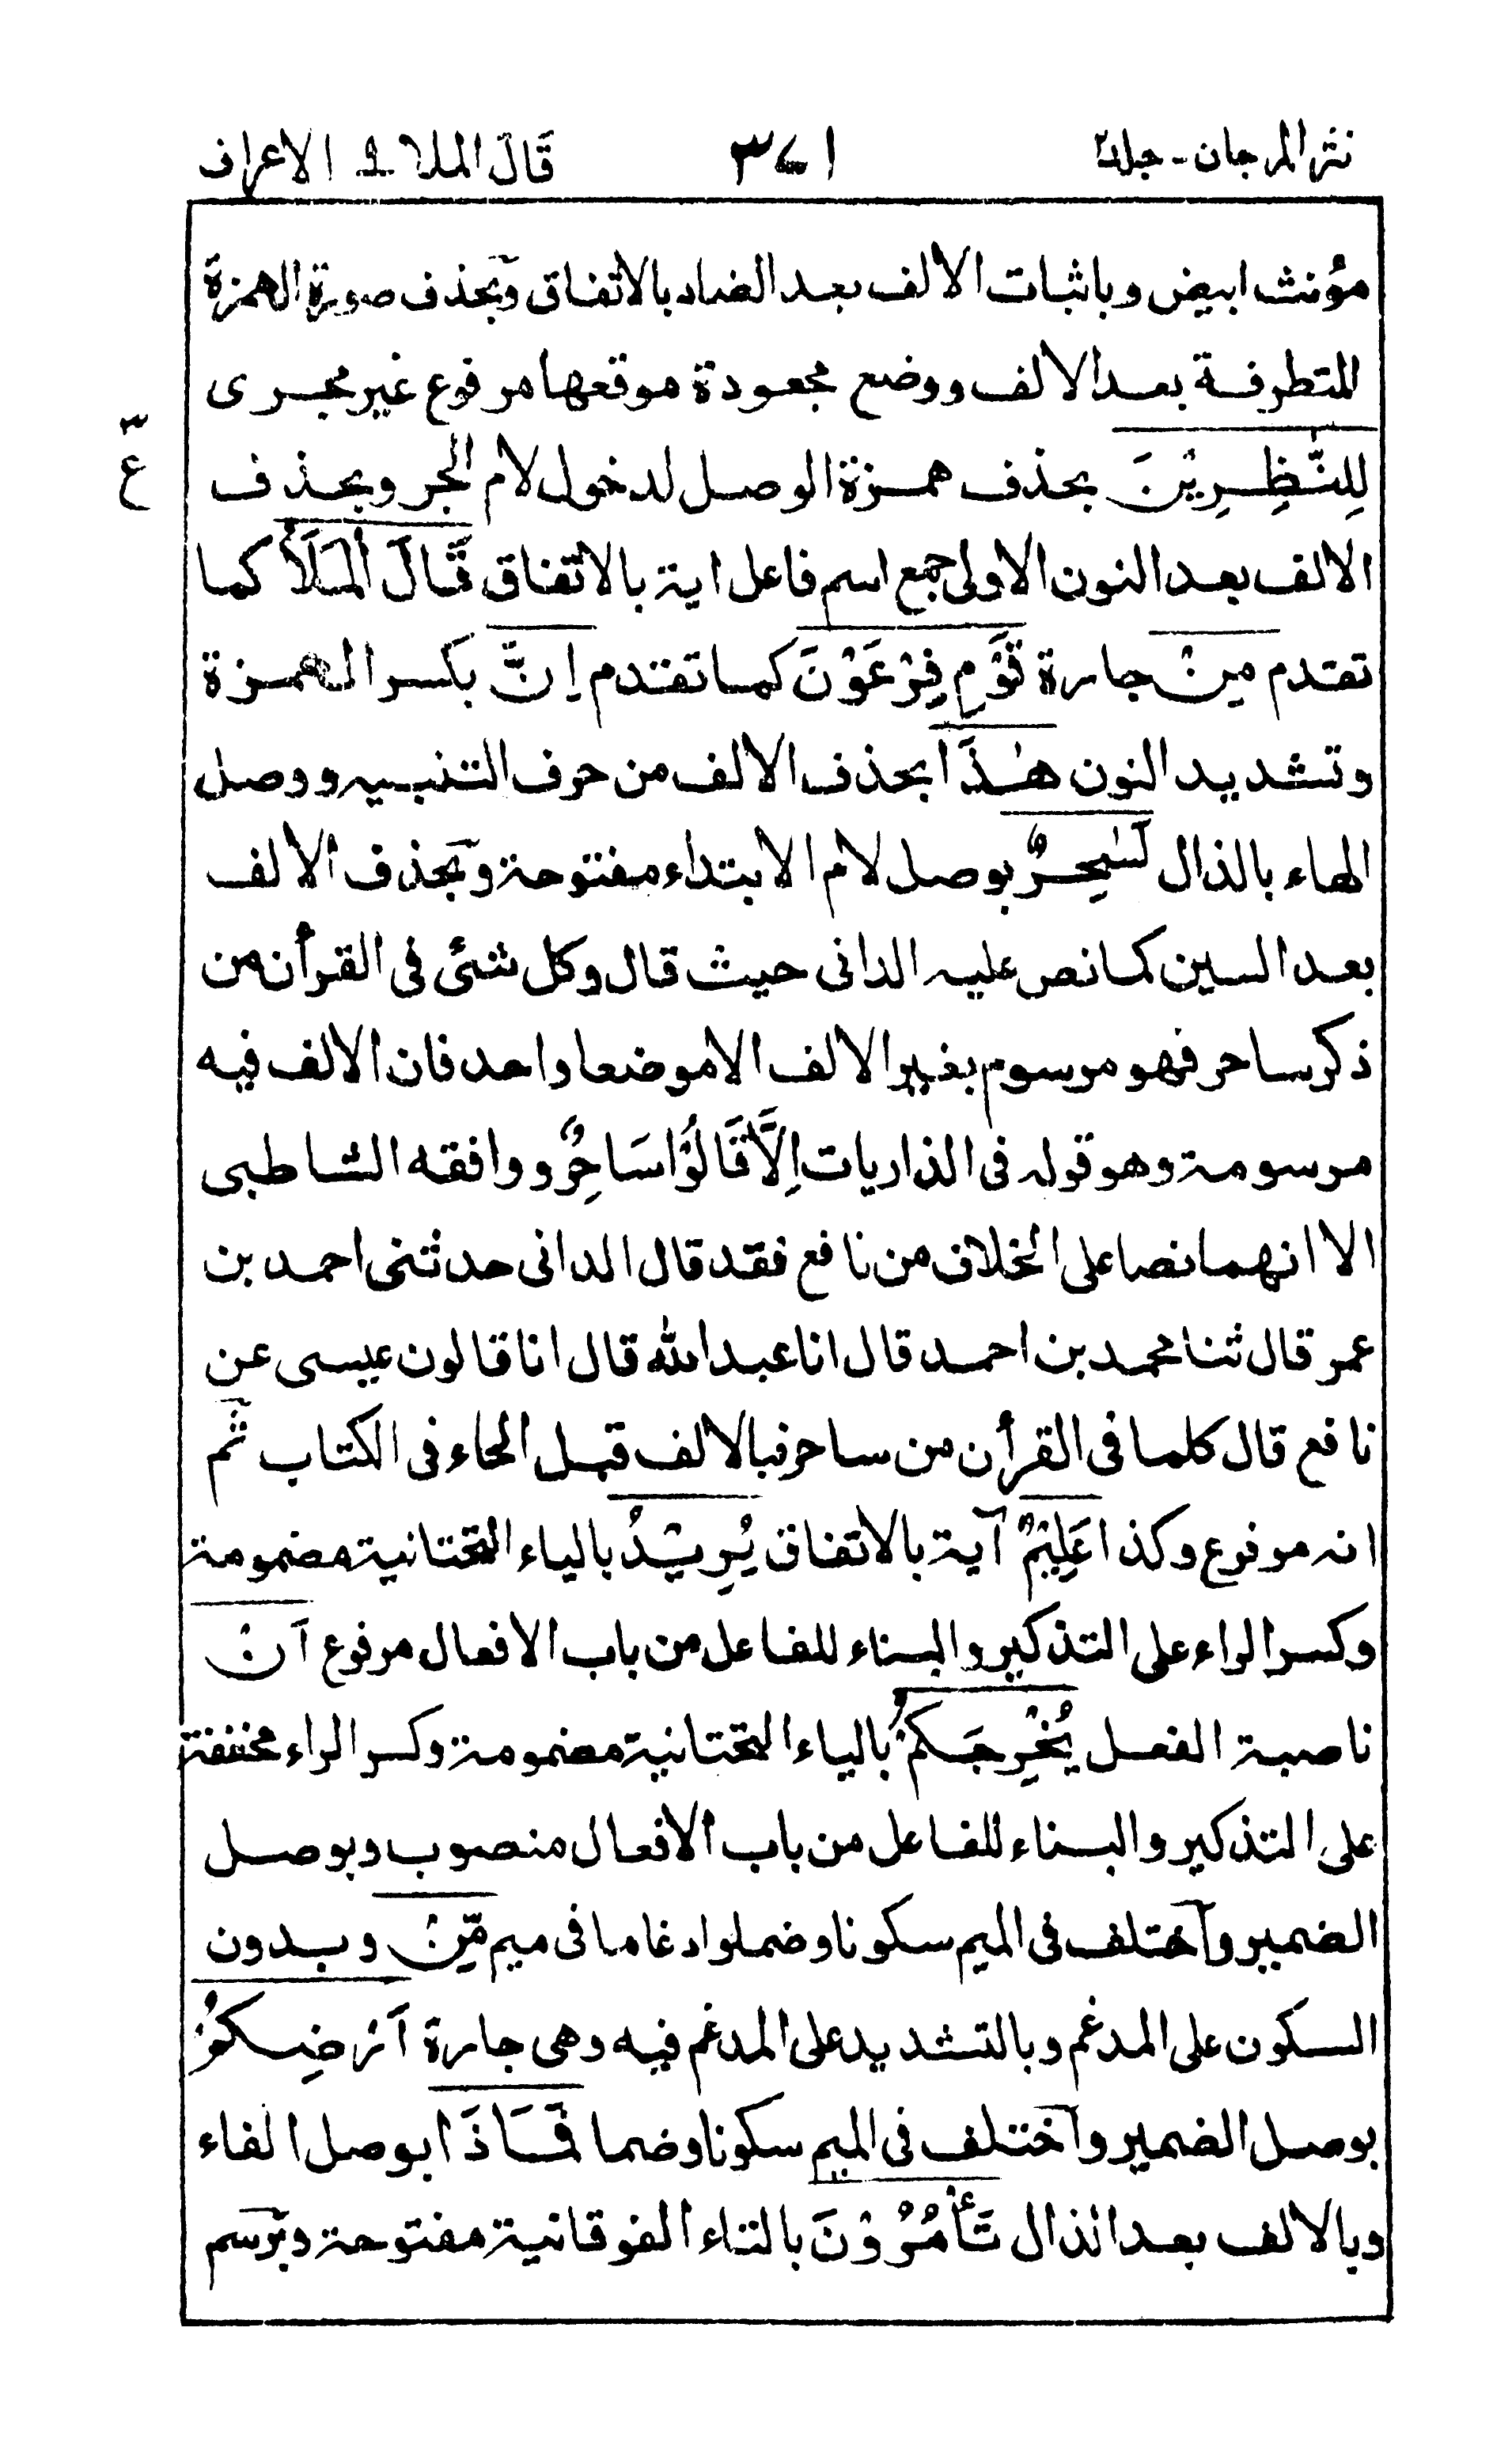 نثر المرجان - جلد۲ ٣٧١ قَالَ الملا ٩ الاعراف
مؤنث ابيض وباثبات الالف بعد الضاد بالاتفاق وبحذف صورة الهمزة
المتطرفة بعد الالف ووضع مجعودة موقعها مرفوع غير مجرى
لِلنّٰظِرِيْنَ بحذف همزة الوصل لدخول لام الجر وبحذف
ع
الالف بعد النون الاولى جمع اسم فاعل اية بالاتفاق قَالَ الْمَلَأُ كما
تقدم مِنْ جارة قَوْمِ فِرْعَوْنَ كما تقدم اِنَّ بكسر الهمزة
وتشديد النون هٰذَا بحذف الالف من حرف التنبيه ووصل
الهاء بالذال لَسٰحِرٌ بوصل لام الابتداء مفتوحة وبحذف الالف
بعد السين كما نص عليه الدانى حيث قال وكل شئ فى القرأن من
ذكر ساحر فهو مرسوم بغير الالف الا موضعا واحد فان الالف فيه
مرسومة وهو قوله فى الذاريات اِلَّا قَالُوْا سَاحِرٌ ووافقه الشاطبى
الا انهما نصا على الخلاف من نافع فقد قال الدانى حدثنى احمد بن
عمر قال ثنا محمد بن احمد قال انا عبدالله قال انا قالون عيسى عن
نافع قال كلما فى القرأن من ساحر فبالالف قبل الحاء فى الكتاب ثم
انه مرفوع وكذا عَلِيْمٌ آية بالاتفاق يُرِيْدُ بالياء التحتانية مضمومة
وكسر الراء على التذكير والبناء للفاعل من باب الافعال مرفوع اَنْ
ناصبة الفعل يُخْرِجَكُمْ بالياء التحتانية مضمومة وكسر الراء مخففة
على التذكير والبناء للفاعل من باب الافعال منصوب وبوصل
الضمير واختلف فى الميم سكونا وضملوادغاما فى ميم مِّنْ وبدون
السكون على المدغم وبالتشديد على المدغم فيه وهى جارة اَرْضِكُمْ
بوصل الضمير واختلف فى الميم سكونا وضما فَمَاذَا بوصل الفاء
وبالالف بعد الذال تَأْمُرُوْنَ بالتاء الفوقانية مفتوحة وبرسم